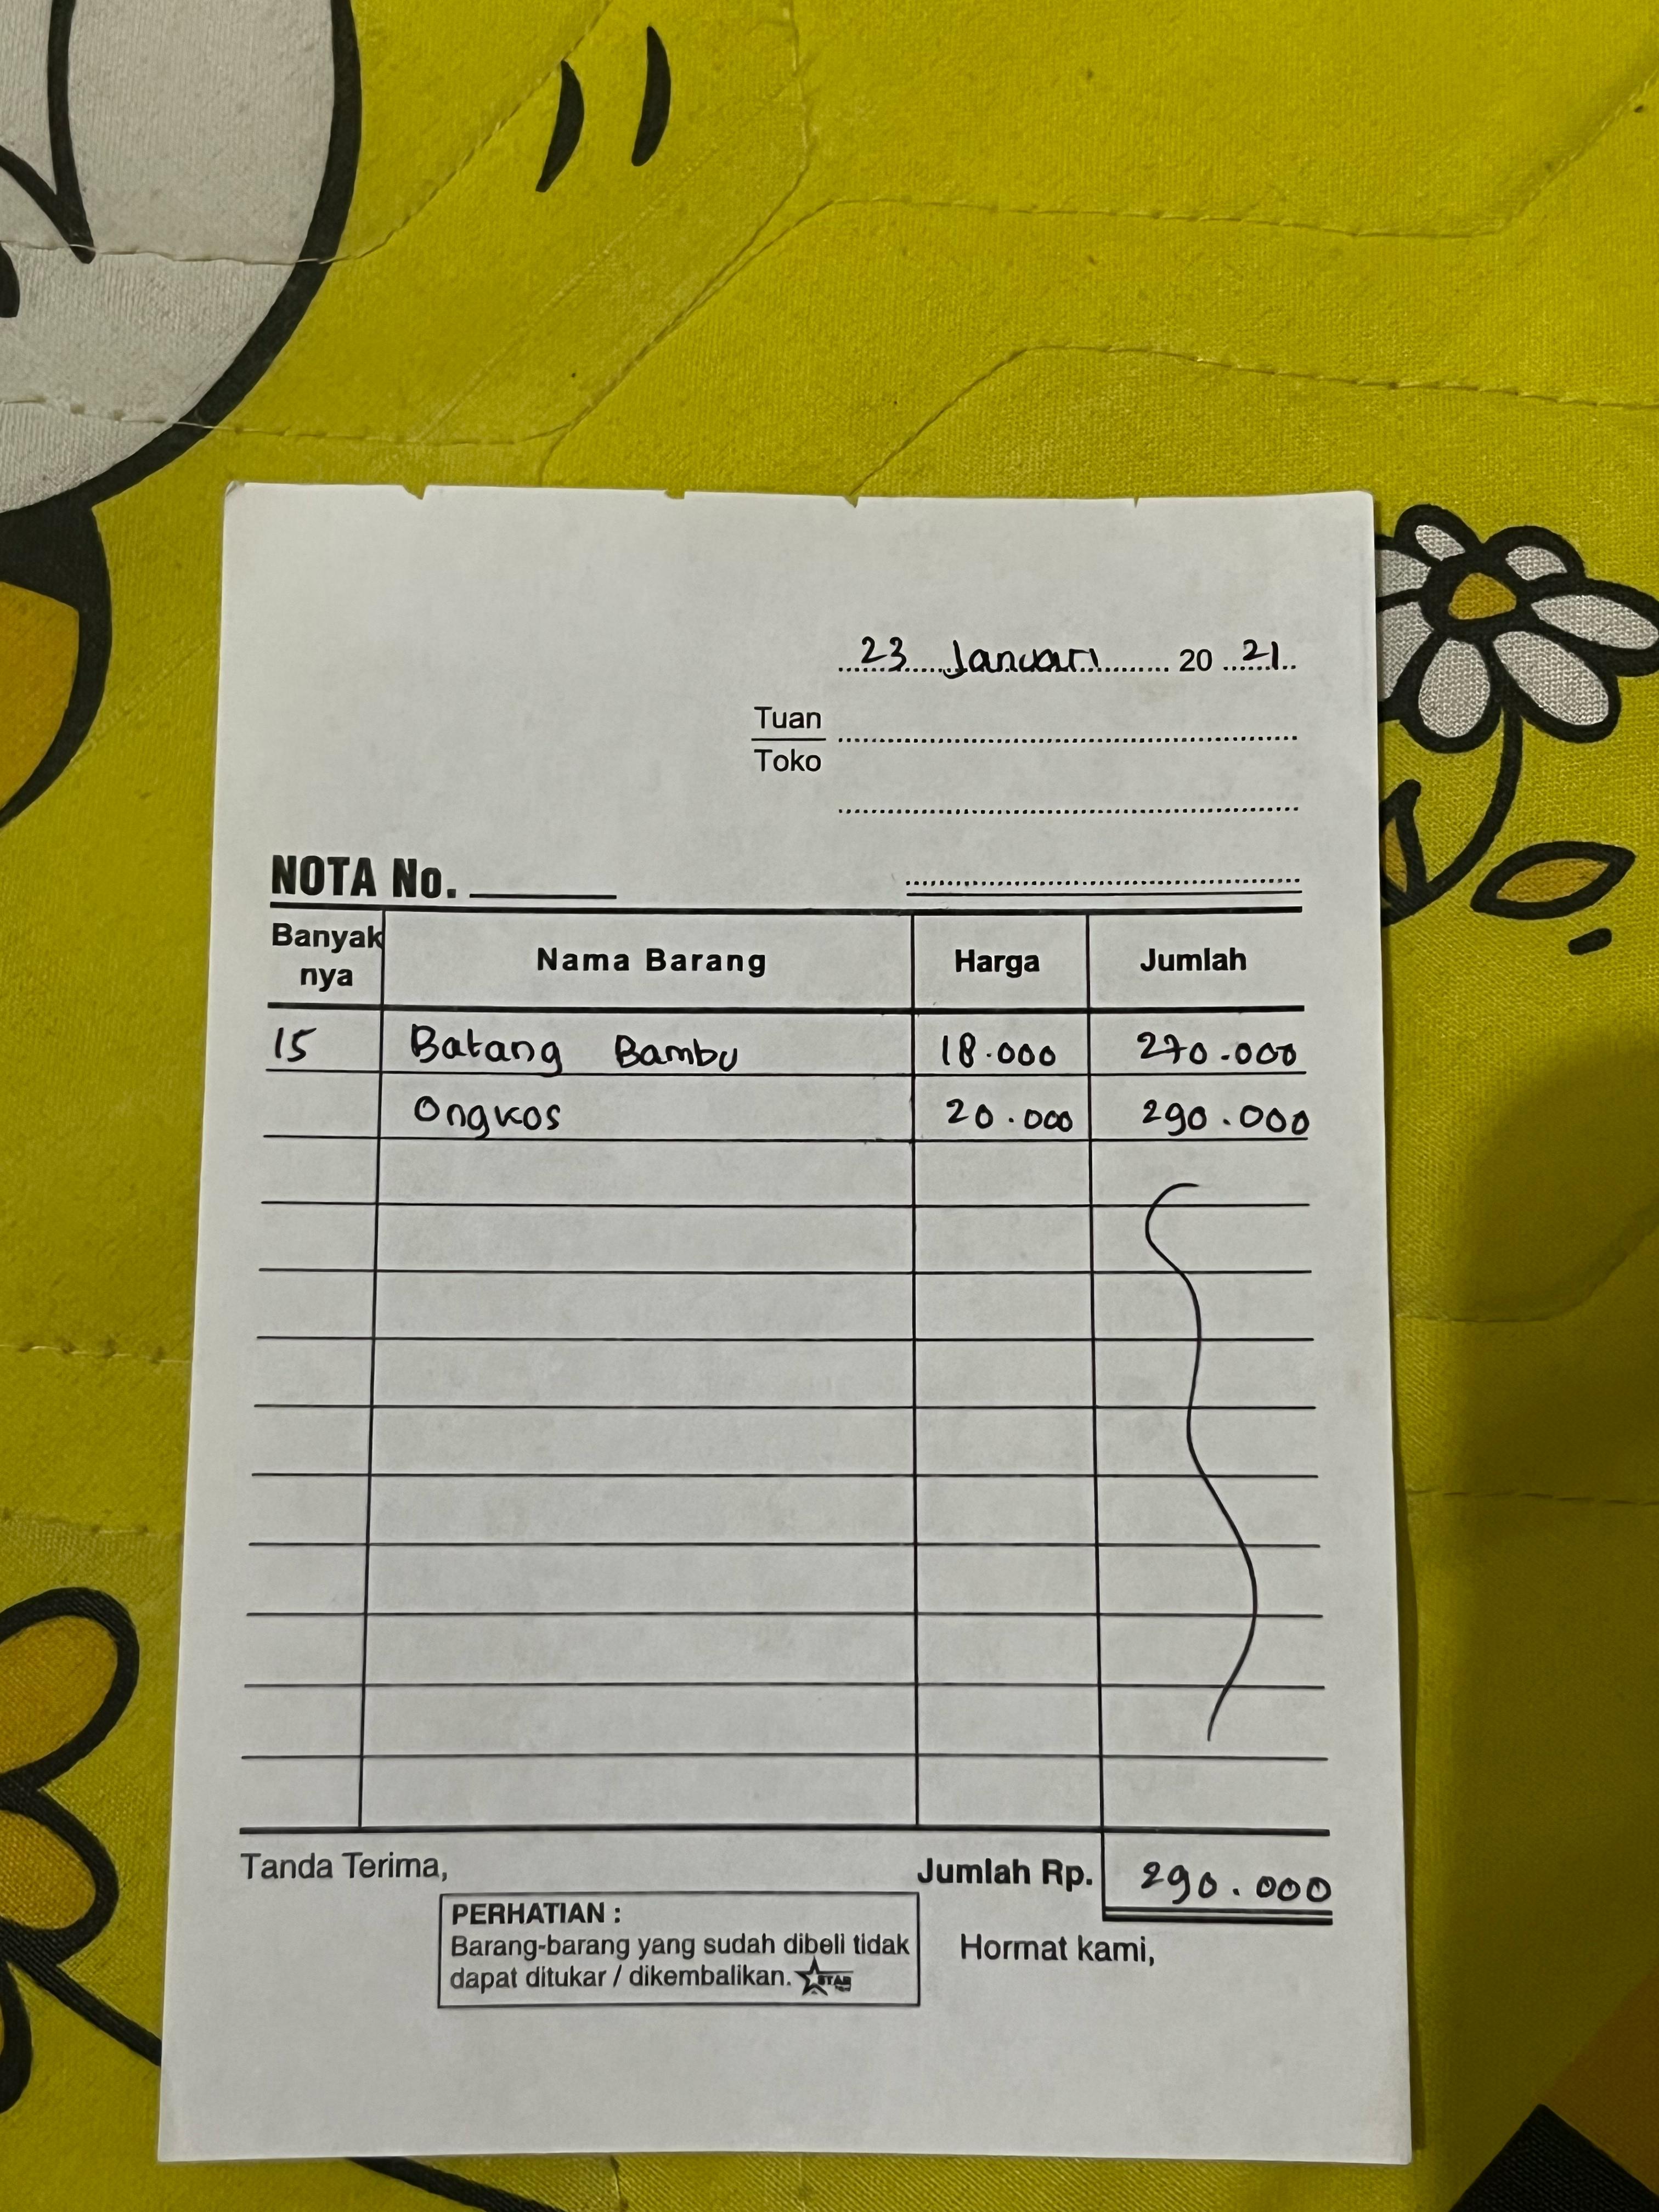 23 Januari 20 21
Tuan
Toko
NOTA No.
Banyak nya Nama Barang Harga Jumlah
15 Batang Bambu 18.000 270.000
Ongkos 20.000 290.000
Tanda Terima, Jumlah Rp. 290.000
PERHATIAN :
Barang-barang yang sudah dibeli tidak
dapat ditukar / dikembalikan. STAR
Hormat kami,